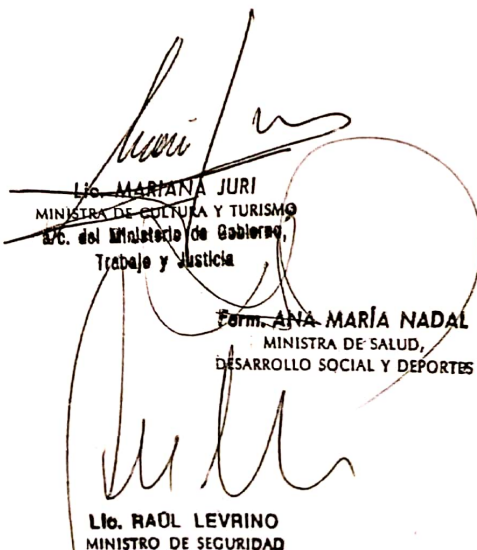 Lic. MARIANA JURI
MINISTRA DE CULTURA Y TURISMO
a/c. del Ministerio de Gobierno,
Trabajo y Justicia
Farm. ANA MARÍA NADAL
MINISTRA DE SALUD,
DESARROLLO SOCIAL Y DEPORTES
Lic. RAÚL LEVRINO
MINISTRO DE SEGURIDAD